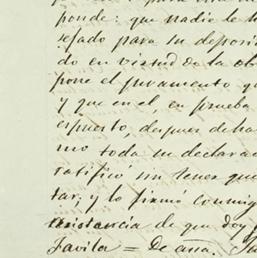 ponde: que nadie le h
sejado para su deposi
do en virtud de la ob
pone el juramento q
y que en el, en prueba
espuesto, despues de ha
mo toda su declarac
ratificó sin tener que
tar; y lo firmó conmig
asistencia de que doy f
Favila = De ana.